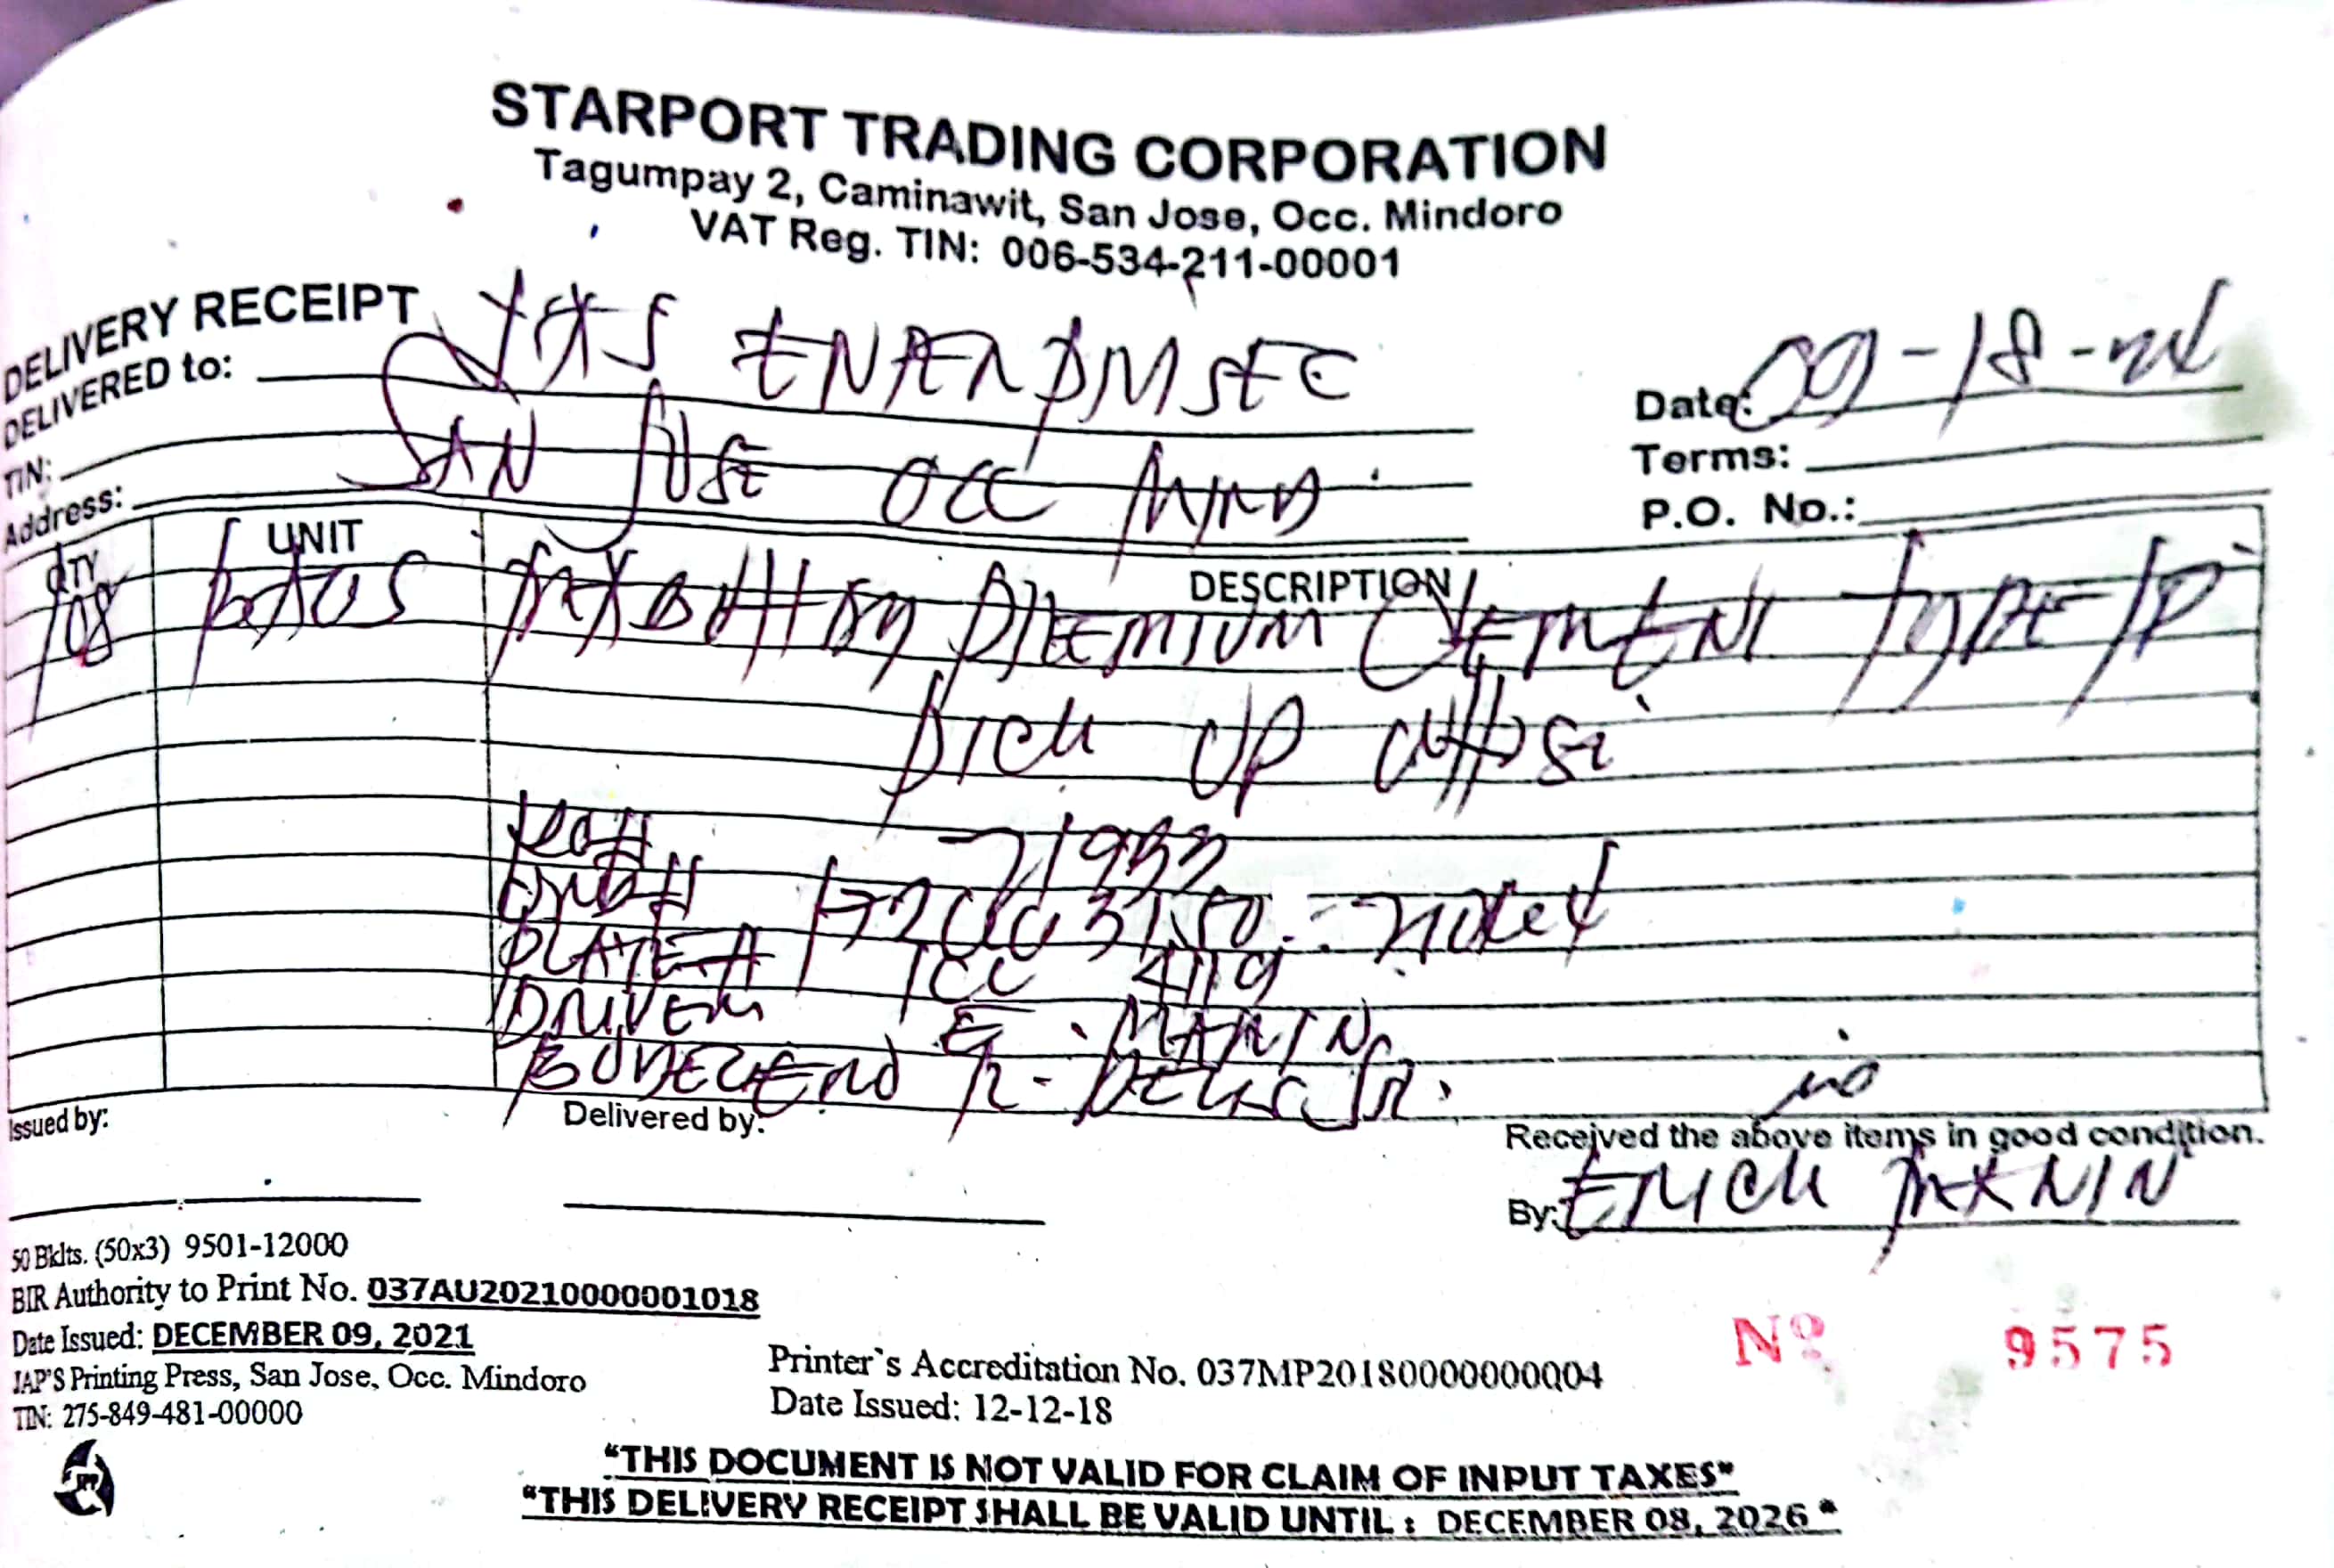 STARPORT TRADING CORPORATION
Tagumpay 2, Caminawit, San Jose, Occ. Mindoro
VAT Reg. TIN: 006-534-211-00001
DELIVERY RECEIPT
DELIVERED to:
Date: 09-18-24
TIN:
Terms:
Address: SAN JOSE OCC MIND.
P.O. No.:
QTY UNIT DESCRIPTION
108 BAGS PREMIUM CEMENT TYPE 1P
PICK UP
71933
noted
PLATE# 4119
DRIVER E. MARIN
R.
Issued by:
Delivered by:
Received the above items in good condition.
By: ERICK
50 Bklts. (50x3) 9501-12000
BIR Authority to Print No. 037AU20210000001018
Date Issued: DECEMBER 09, 2021
JAP'S Printing Press, San Jose, Occ. Mindoro
TIN: 275-849-481-00000
Printer`s Accreditation No. 037MP20180000000004
Date Issued: 12-12-18
Nº 9575
"THIS DOCUMENT IS NOT VALID FOR CLAIM OF INPUT TAXES"
"THIS DELIVERY RECEIPT SHALL BE VALID UNTIL : DECEMBER 08, 2026"